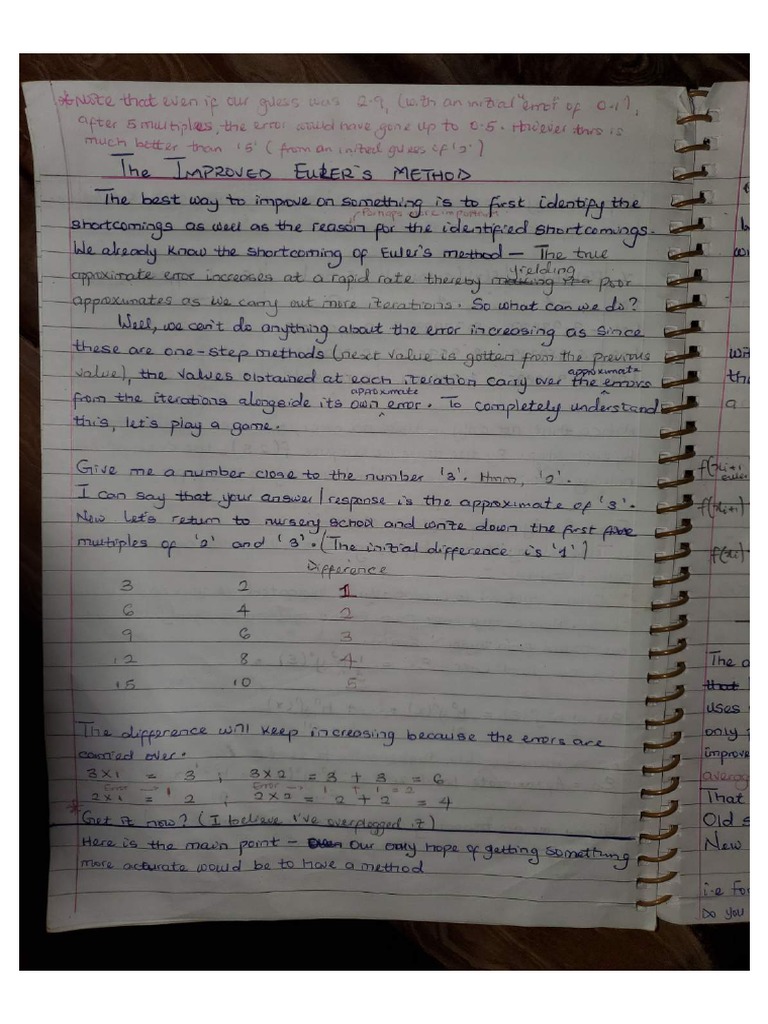 *Note that even if our guess was 2.9, (with an initial "error" of 0.1),
after 5 multiples, the error would have gone up to 0.5. However this is
much better than '5' (from an initial guess of '2')
The IMPROVED EULER'S METHOD
The best way to improve on something is to first identify the
Perhaps more important
shortcomings as well as the reason for the identified shortcomings.
We already know the shortcoming of Euler's method – The true
yielding
approximate error increases at a rapid rate thereby poor
approximates as we carry out more iterations. So what can we do?
Well, we can't do anything about the error increasing as since
these are one-step methods (next value is gotten from the previous
approximate
value), the values obtained at each iteration carry over the errors
approximate
from the iterations alongside its own error. To completely understand
this, let's play a game.
Give me a number close to the number '3'. Hmm, '2'.
I can say that your answer/response is the approximate of '3'.
Now let's return to nursery school and write down the first five
multiples of '2' and '3'. (The initial difference is '1')
Difference
3 2 1
6 4 2
9 6 3
12 8 4
15 10 5
The difference will keep increasing because the errors are
carried over.
3×1 = 3 ; 3×2 = 3 + 3 = 6
Error → 1 Error → 1 + 1 = 2
2×1 = 2 ; 2×2 = 2 + 2 = 4
* Get it now? (I believe I've overplogged it)
Here is the main point – Our only hope of getting something
more accurate would be to have a method
f(xi+1
f(xi+1)
f(xi)
The
that
uses
only
improve
averag
That
Old s
New
i.e for
Do you